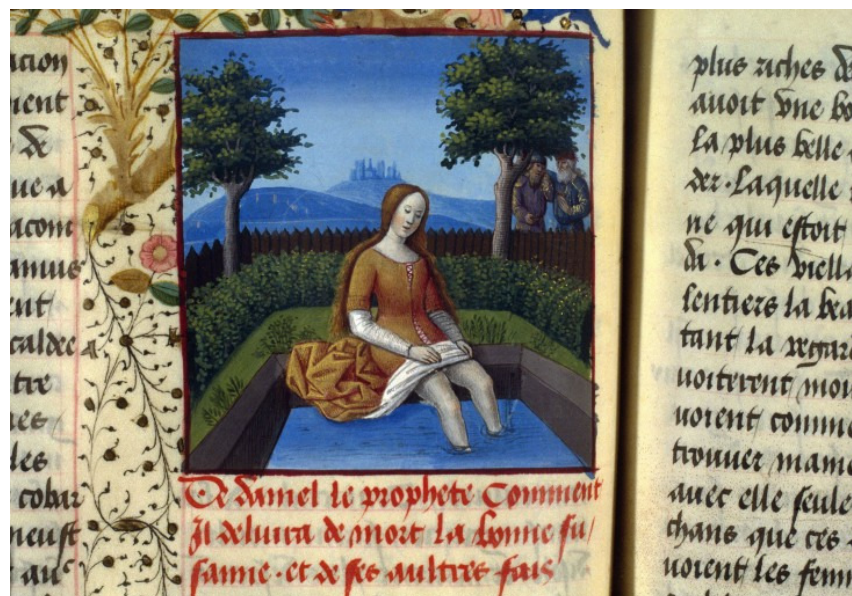 acion
ment
de
ue a
acont
amus
ent
caldee
tre
es
les
cobar
neust
au
De daniel le prophete Comment
Il delivra de mort la bonne su/
sanne. et de ses aultres fais
plus riches de
avoit une bo
la plus belle
der. Laquelle
ne qui estoit
da. Ces viella
sentiers la bea
tant la regar
voiterent mou
voient comme
trouver maine
avec elle seule
chans que ces
voient les fem